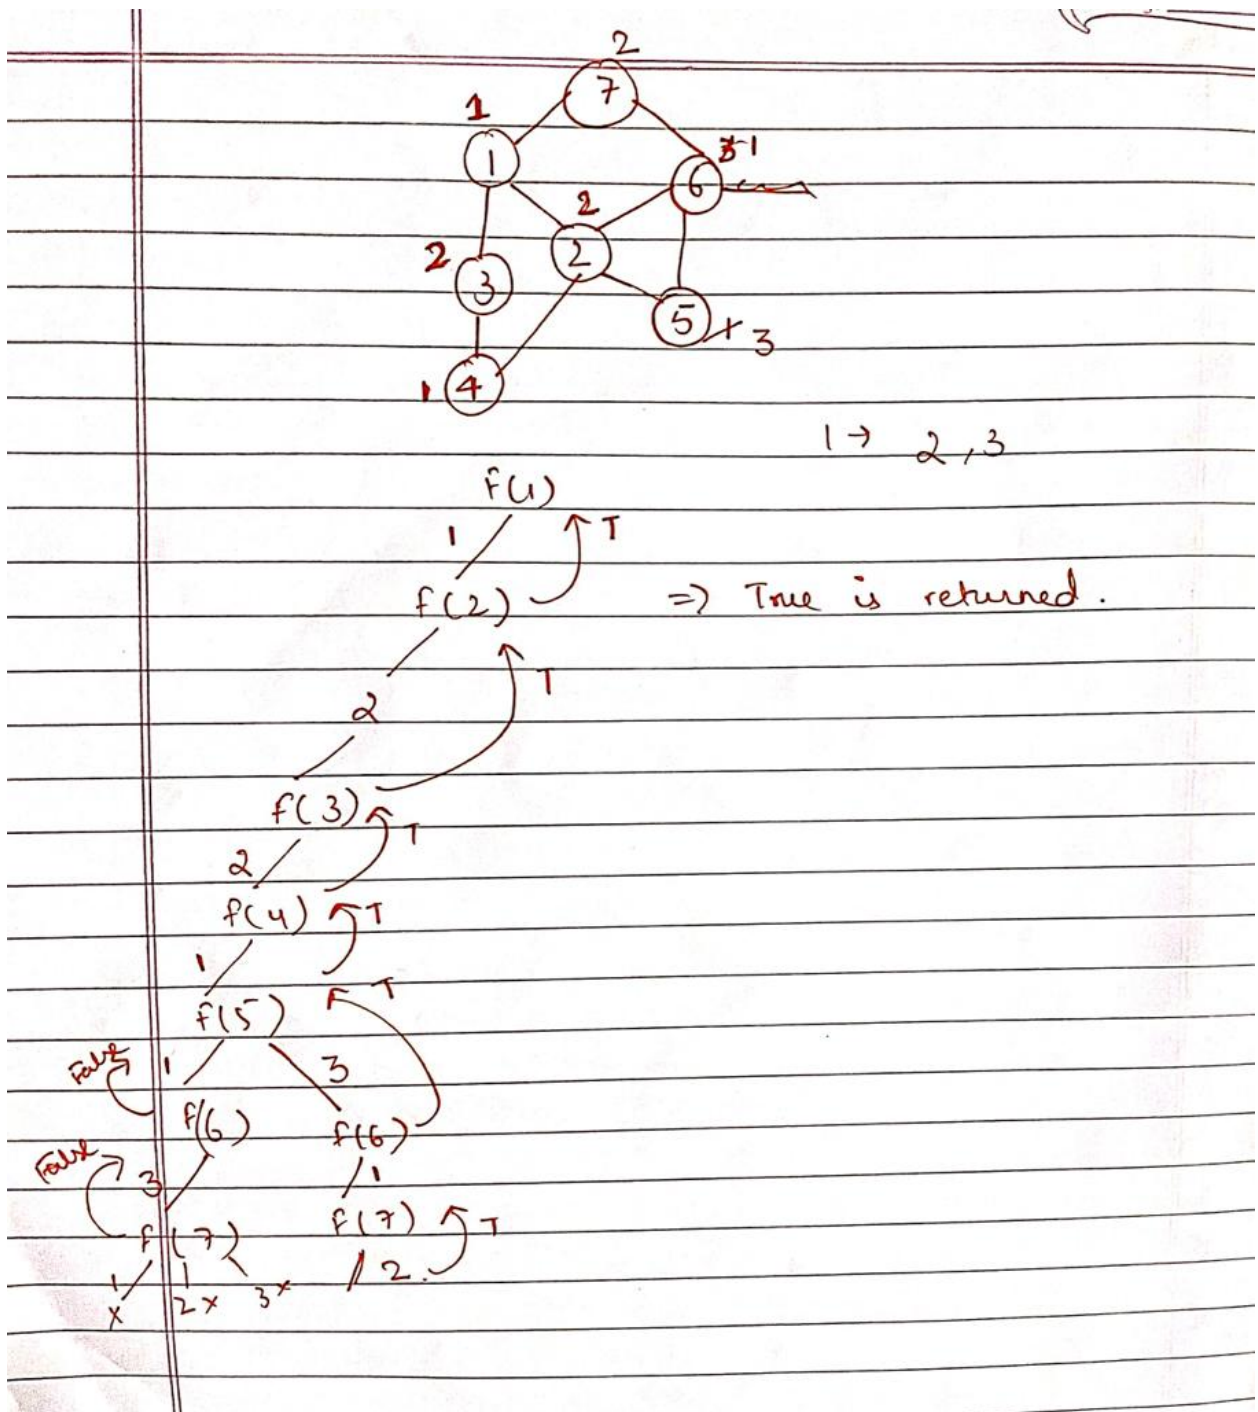 2
7
1
1
3 1
6
2
2
2
3
5
3
1
4
1 → 2, 3
f(1)
1
T
f(2)
=> True is returned.
T
2
f(3)
T
2
f(4)
T
1
T
f(5)
False
1
3
f(6)
f(6)
False
3
1
f(7)
f(7)
T
1
2
3 x
2.
x
x